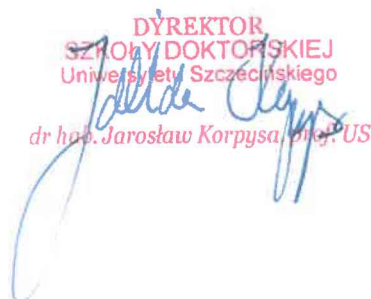 DYREKTOR
SZKOŁY DOKTORSKIEJ
Uniwersytetu Szczecińskiego
dr hab. Jarosław Korpysa, prof. US